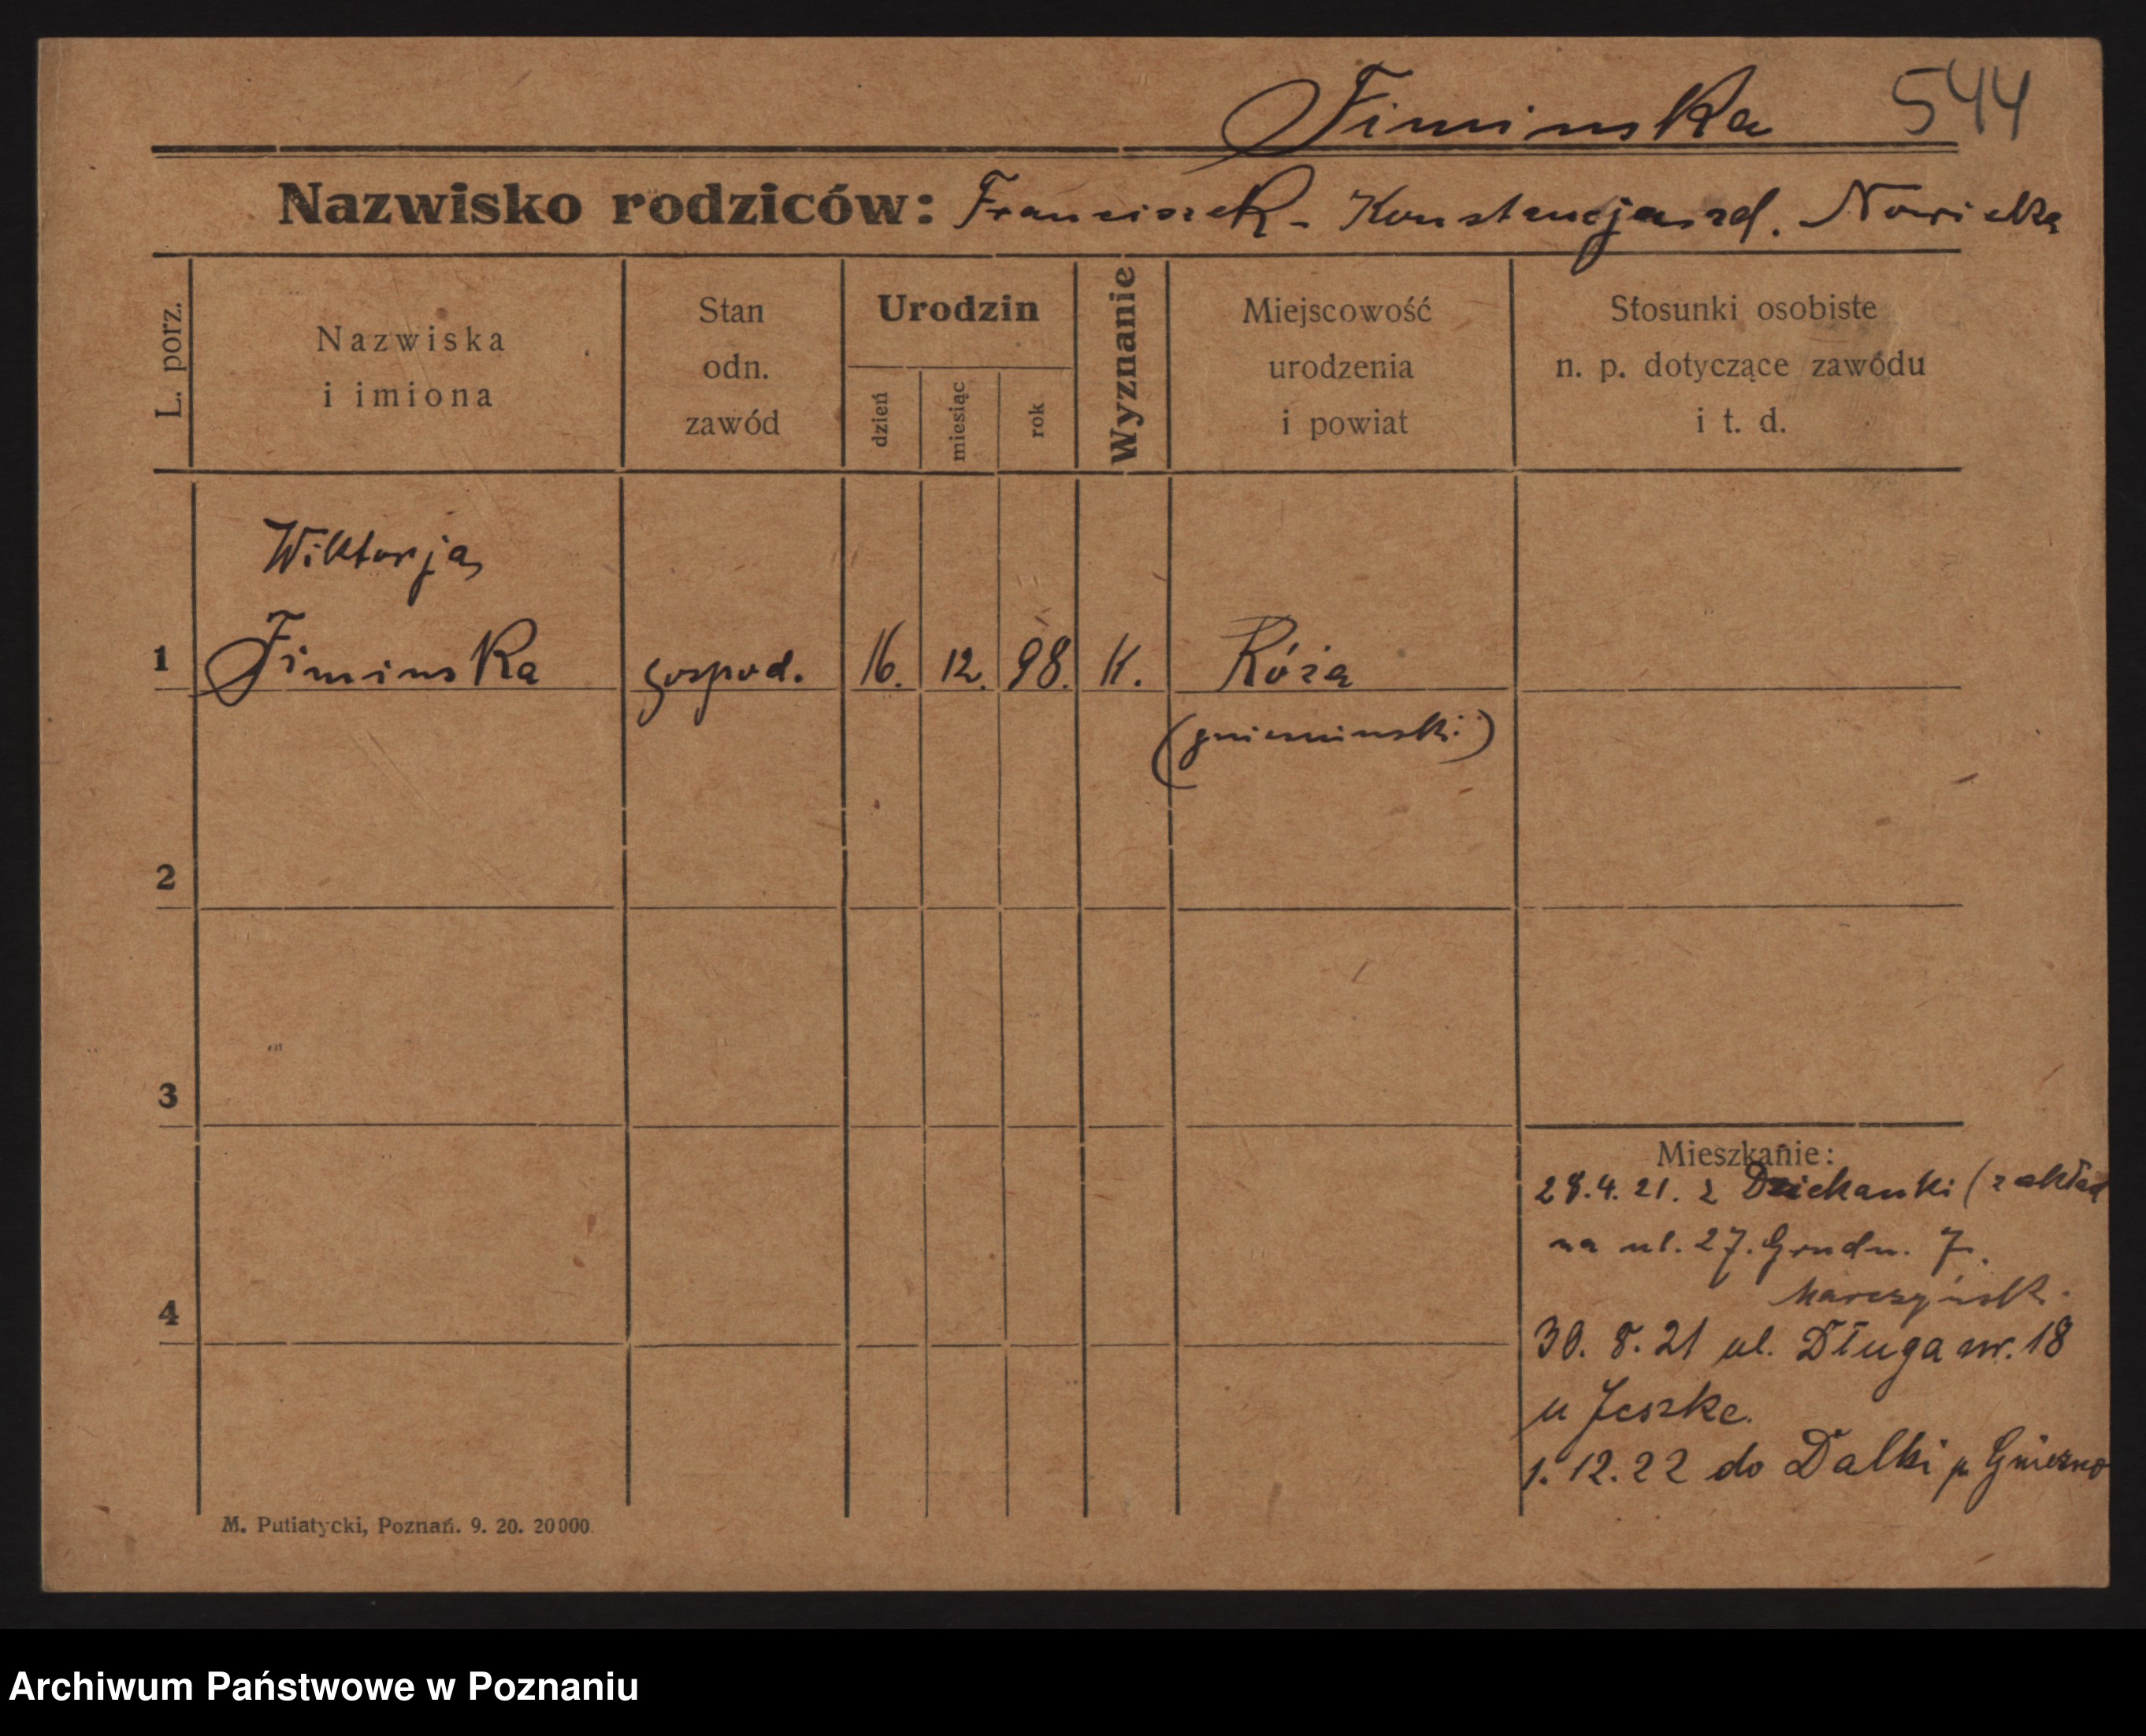 Fiminska 544
Nazwisko rodziców: Franciszek - Konstancja zd. Nowicka
L. porz.
Nazwiska
i imiona
Stan
odn.
zawód
Urodzin
dzień
miesiąc
rok
Wyznanie
Miejscowość
urodzenia
i powiat
Stosunki osobiste
n. p. dotyczące zawódu
i t. d.
Wiktorja
1 Fiminska gospod. 16. 12. 98. K. Róża
(gnieźninski)
2
3
4
Mieszkanie:
28.4.21. z Dziekanki (zakład
na ul. 27. Grudn. 7.
30. 8. 21 ul. Długa nr. 18
u Jeszke.
1. 12. 22 do Dalki p. Gniezno
M. Putiatycki, Poznań. 9. 20. 20000.
Archiwum Państwowe w Poznaniu